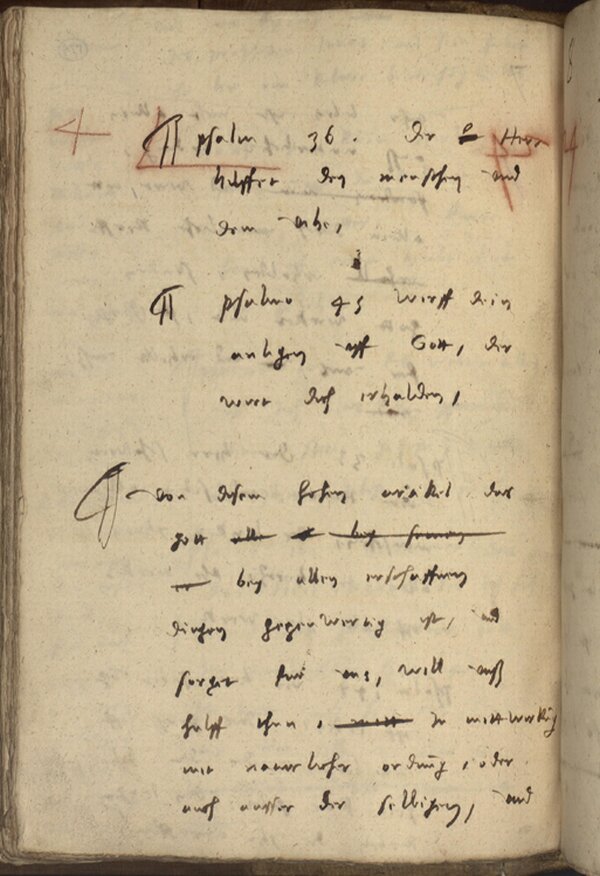 ¶ psalm 36. der Herr
hilffet den menschen und
dem vihe,
¶ psalmo 45 wirff dein
anligen uff Gott, der
wirt dich erhalden,
¶ von disem hohen artikel das
gott alle
bey allen erschaffnen
dingen gegenwertig ist, und
sorget fur uns, will uns
hulff thun, zu mittwirkung
mit naturlicher ordnung, oder
auch ausser der selbigen, und